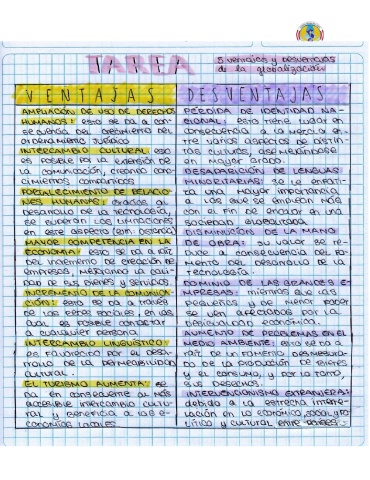 TAREA
5 ventajas y desventajas
de la globalización
VENTAJAS
AMPLIACIÓN DE USO DE DERECHOS
HUMANOS: esto se da a con-
secuencia del crecimiento del
ordenamiento jurídico
INTERCAMBIO CULTURAL: esto
es posible por la extensión de
la comunicación, creando cono-
cimientos compartidos
FORTALECIMIENTO DE RELACIO-
NES HUMANAS: gracias al
desarrollo de la tecnología,
se superan las limitaciones
en este aspecto (ejm: distancia)
MAYOR COMPETENCIA EN LA
ECONOMÍA: esto se da a raíz
del incremento de creación de
empresas, mejorando la cali-
dad de sus bienes y servicios.
INCREMENTO DE LA COMUNICA-
CIÓN: esto se da a través
de las redes sociales, en las
cual es posible contactar
a cualquier persona
INTERCAMBIO LINGUÍSTICO:
es favorecido por el desa-
rrollo de la permeabilidad
cultural.
EL TURISMO AUMENTA: se
da en consecuente al más
accesible intercambio cultu-
ral y beneficia a las e-
conomías locales.
DESVENTAJAS
PÉRDIDA DE IDENTIDAD NA-
CIONAL: esto tiene lugar en
consecuencia a la mezcla en-
tre varios aspectos de distin-
tas culturas, asemejándose
en mayor grado.
DESAPARICIÓN DE LENGUAS
MINORITARIAS: se le enfati-
za una mayor importancia
a las que se emplean más
con el fin de encajar en una
sociedad globalizada
DISMINUCIÓN DE LA MANO
DE OBRA: su valor se re-
duce a consecuencia del fo-
mento del desarrollo de la
tecnología.
DOMINIO DE LAS GRANDES E-
MPRESAS: mientras que las
pequeñas y de menor poder
se ven afectadas por la
desigualdad económica.
AUMENTO DE PROBLEMAS EN EL
MEDIO AMBIENTE: esto se da a
raíz de un fomento desmesura-
do de la producción de bienes
y el consumo, y por lo tanto,
sus desechos.
INTERVENCIONISMO EXTRANJERO:
debido a la estrecha interre-
lación en lo económico, social, po-
lítico y cultural entre países.